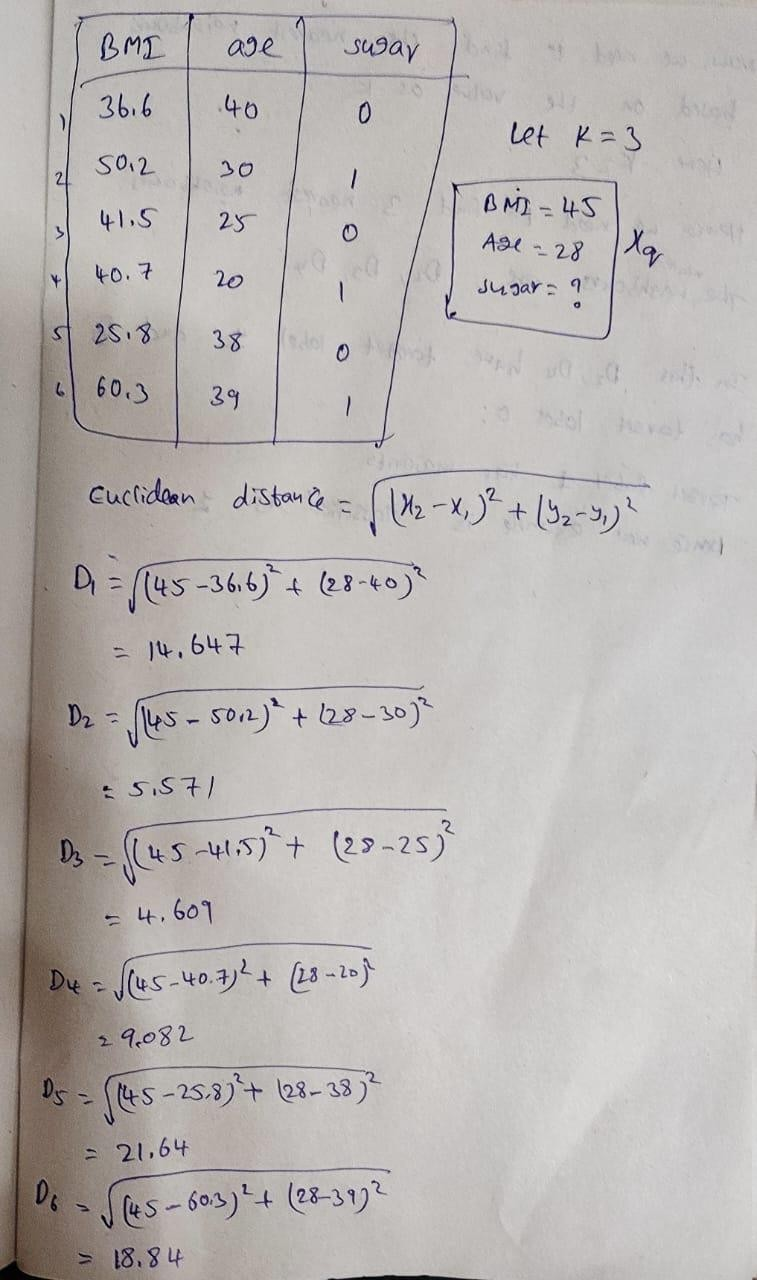 BMI age sugar
1 36.6 40 0
2 50.2 30 1
3 41.5 25 0
4 40.7 20 1
5 25.8 38 0
6 60.3 39 1
Let K = 3
BMI = 45
Age = 28
sugar = ?
Xq
Euclidean distance = √(x₂ - x₁)² + (y₂ - y₁)²
D₁ = √(45 - 36.6)² + (28 - 40)²
= 14.647
D₂ = √(45 - 50.2)² + (28 - 30)²
= 5.571
D₃ = √(45 - 41.5)² + (28 - 25)²
= 4.609
D₄ = √(45 - 40.7)² + (28 - 20)²
= 9.082
D₅ = √(45 - 25.8)² + (28 - 38)²
= 21.64
D₆ = √(45 - 60.3)² + (28 - 39)²
= 18.84